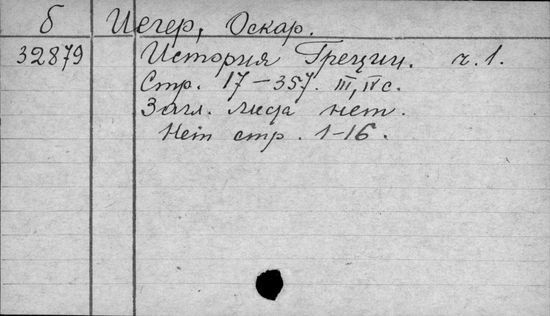 б Иегер, Оскар.
32879 История Греции. ч. 1.
Стр. 17-357. III, IV с.
Загл. лица нет.
Нет стр. 1-16.